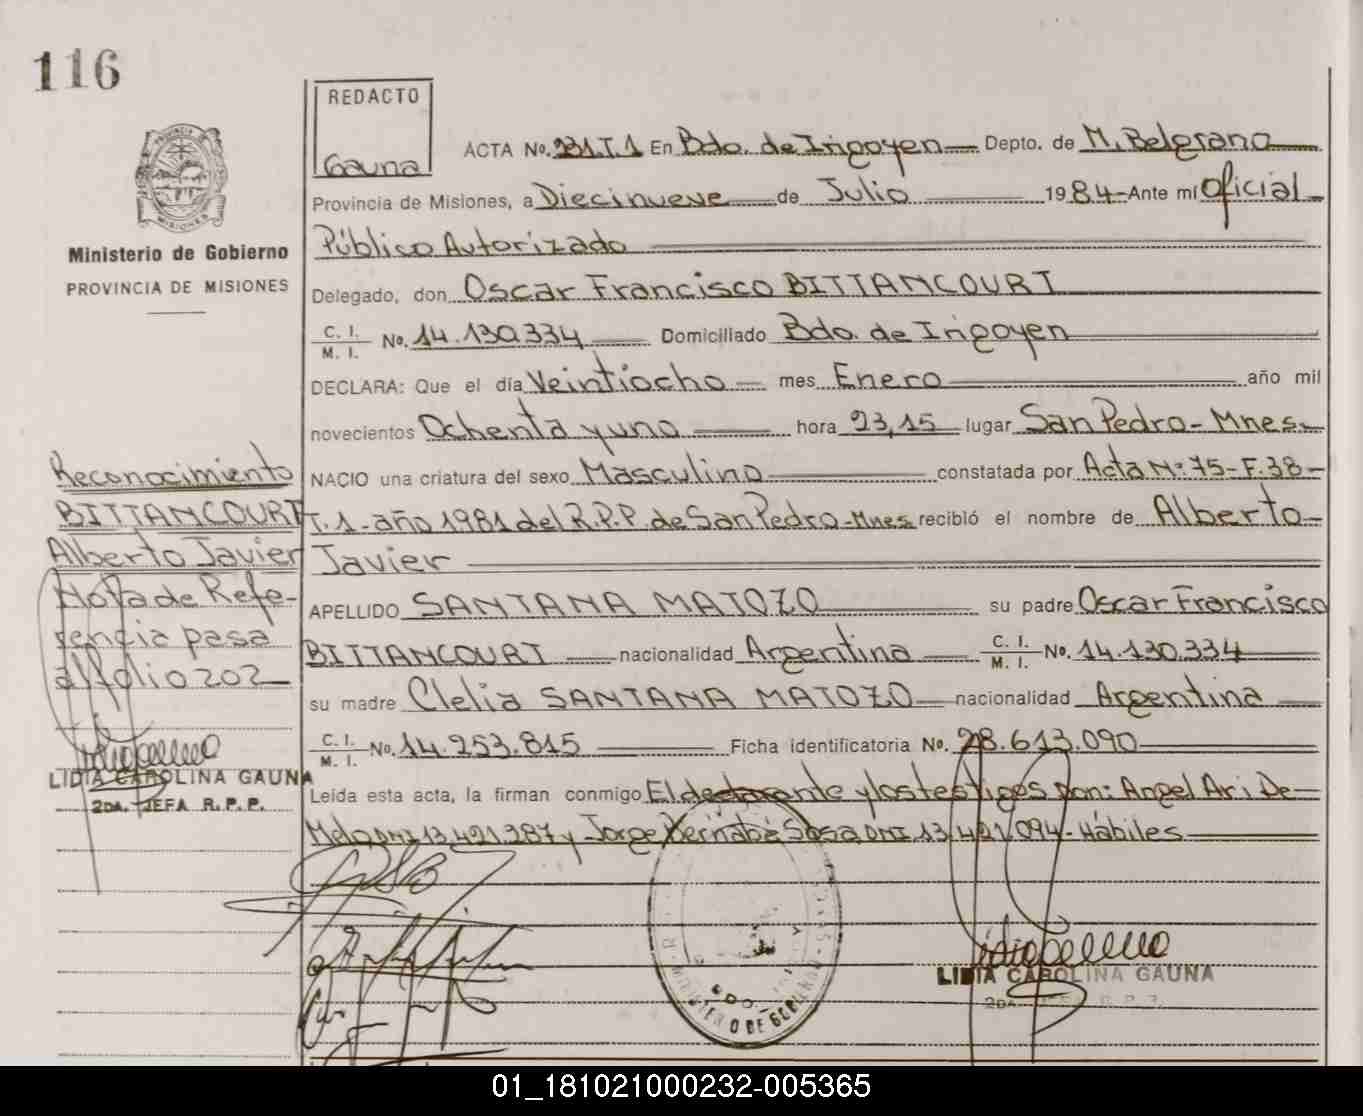 116
PROVINCIA DE
MISIONES
Ministerio de Gobierno
PROVINCIA DE MISIONES
REDACTO
Gauna
ACTA No. 231.T.1 En Bdo. de Irigoyen Depto. de M. Belgrano
Provincia de Misiones, a Diecinueve de Julio 1984 Ante mí Oficial
Público Autorizado
Delegado, don Oscar Francisco BITTANCOURT
C. I. / M. I. No. 14.130.334 Domiciliado Bdo. de Irigoyen
DECLARA: Que el día Veintiocho mes Enero año mil
novecientos Ochenta y uno hora 23,15 lugar San Pedro - Mnes.
NACIO una criatura del sexo Masculino constatada por Acta Nº: 75 - F. 38 -
T. 1 - año 1981 del R.P.P. de San Pedro - Mnes recibió el nombre de Alberto
Javier
APELLIDO SANTANA MATOZO su padre Oscar Francisco
BITTANCOURT nacionalidad Argentina C. I. / M. I. No. 14.130.334
su madre Clelia SANTANA MATOZO nacionalidad Argentina
C. I. / M. I. No. 14.253.815 Ficha identificatoria No. 28.613.090
Leída esta acta, la firman conmigo El declarante y los testigos Don: Angel Ari De
Melo DNI 13.421.287 y Jorge Bernabé Sosa DNI. 13.421.094 - Hábiles
Reconocimiento
BITTANCOURT
Alberto Javier
Nota de Refe-
rencia pasa
al folio 202
LIDIA CAROLINA GAUNA
2DA. JEFA R. P. P.
MINISTERIO DE GOBIERNO
LIDIA CAROLINA GAUNA
2DA. JEFA R. P. P.
01_181021000232-005365